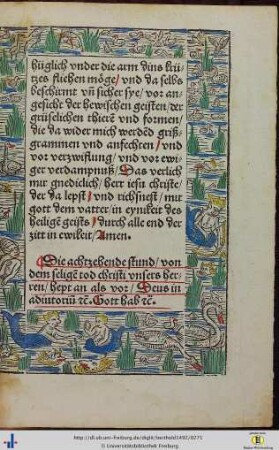 hüglich vnder die arm dins krü-
tzes fliehen möge/ vnd da selbs
beschirmt vñ sicher sye/ vor an-
gesicht der bewischen geisten/der
grüselichen thierē vnd formen/
die da wider mich werdēd griß-
grammen vnd anfechten/ vnd
vor verzwiflung/ vnd vor ewi-
ger verdampniß/ Das verlich
mir gnediclich/ herr iesu christe/
der da lepst/ vnd richsnest/ mit
gott dem vatter/in eynikeit des
heiligē geists/ durch alle end der
zitt in ewikeit/Amen.
Die achtzehende stund/ von
dem seligē tod christi vnsers her-
ren/ hept an als vor/ Deus in
adiutoriū ⁊c. Gott hab ⁊c.
http://dl.ub.uni-freiburg.de/diglit/berthold1492/0271
© Universitätsbibliothek Freiburg